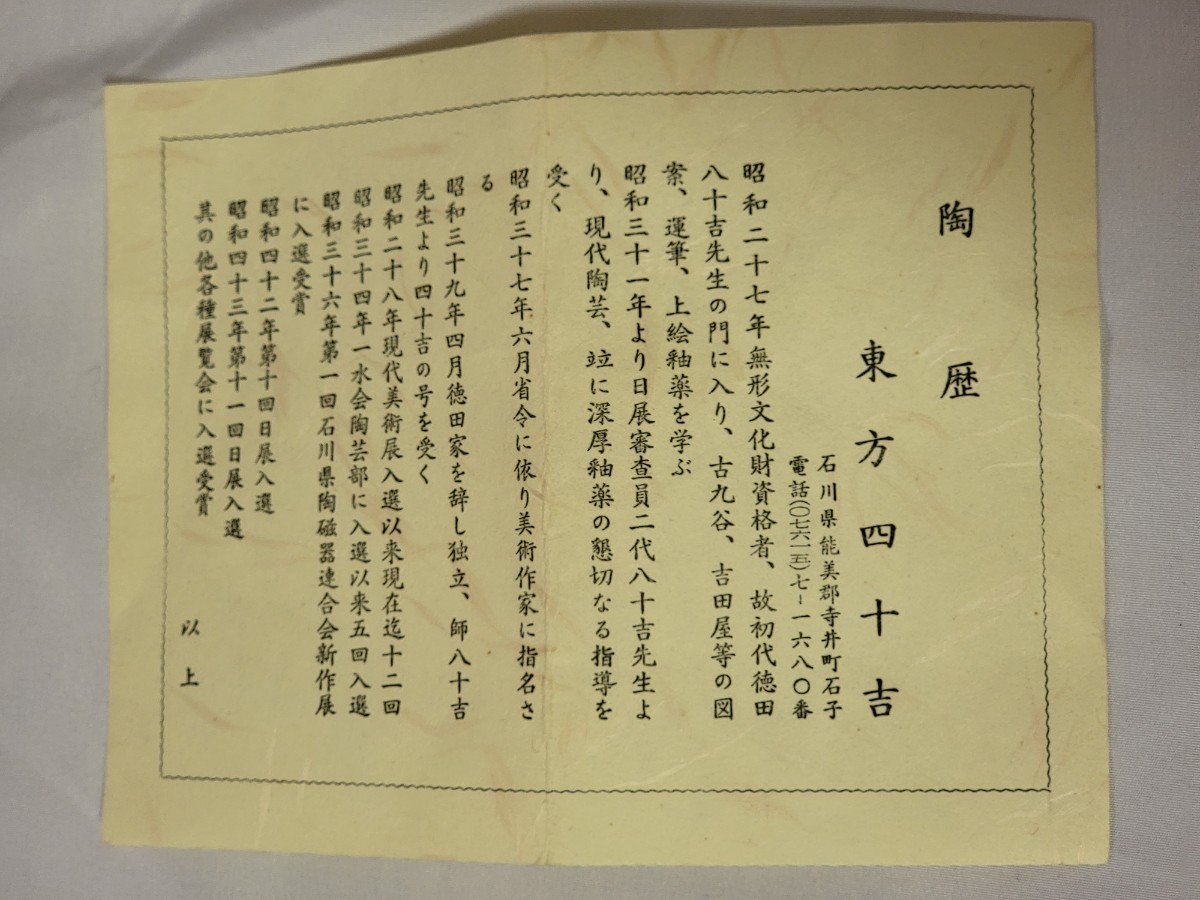 陶歴
東方四十吉
石川県能美郡寺井町石子
電話(〇七六一五)七−一六八〇番
昭和二十七年無形文化財資格者、故初代徳田
八十吉先生の門に入り、古九谷、吉田屋等の図
案、運筆、上絵釉薬を学ぶ
昭和三十一年より日展審査員二代八十吉先生よ
り、現代陶芸、竝に深厚釉薬の懇切なる指導を
受く
昭和三十七年六月省令に依り美術作家に指名さ
る
昭和三十九年四月徳田家を辞し独立、師八十吉
先生より四十吉の号を受く
昭和二十八年現代美術展入選以来現在迄十二回
昭和三十四年一水会陶芸部に入選以来五回入選
昭和三十六年第一回石川県陶磁器連合会新作展
に入選受賞
昭和四十二年第十回日展入選
昭和四十三年第十一回日展入選
其の他各種展覧会に入選受賞
以上